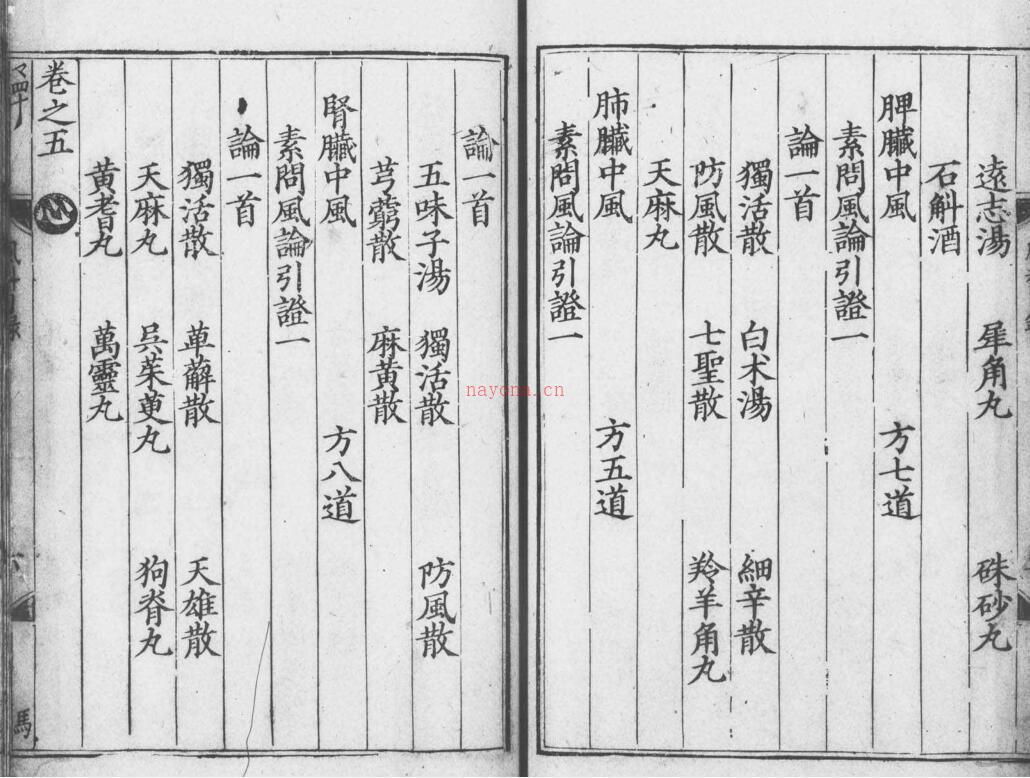 遠志湯 犀角丸 硃砂丸
石斛酒
脾臟中風 方七道
素問風論引證一
論一首
獨活散 白术湯 細辛散
防風散 七聖散 羚羊角丸
天麻丸
肺臟中風 方五道
素問風論引證一
論一首
五味子湯 獨活散 防風散
芎藭散 麻黃散
腎臟中風 方八道
素問風論引證一
論一首
獨活散 萆薢散 天雄散
天麻丸 吳茱萸丸 狗脊丸
黃耆丸 萬靈丸
卷之五
六
馬
nayona.cn